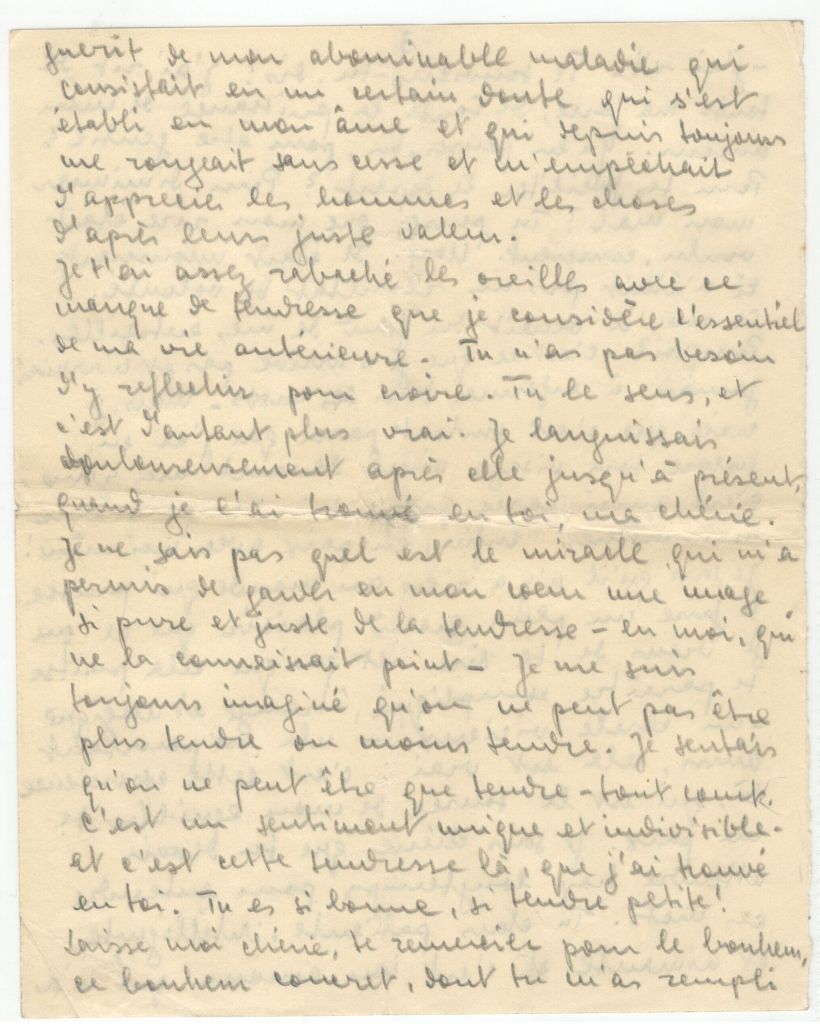 guérit de mon abominable maladie qui
consistait en un certain doute qui s'est
établi en mon âme et qui depuis toujours
me rongeait sans cesse et m'empêchait
d'apprecier les hommes et les choses
d'après leurs juste valeur.
Je t'ai assez rabaché les oreilles avec ce
manque de tendresse que je considère l'essentiel
de ma vie antérieure. Tu n'as pas besoin
d'y reflechir pour croire. Tu le sens, et
c'est d'autant plus vrai. Je languissais
douloureusement après elle jusqu'à présent,
quand je l'ai trouvé en toi, ma chérie.
Je ne sais pas quel est le miracle, qui m'a
permis de garder en mon coeur une image
si pure et juste de la tendresse – en moi, qui
ne la connaissait point – Je me suis
toujours imaginé qu'on ne peut pas être
plus tendre ou moins tendre. Je sentais
qu'on ne peut être que tendre – tout court.
C'est un sentiment unique et indivisible.
et c'est cette tendresse là, que j'ai trouvé
en toi. Tu es si bonne, si tendre petite!
Laisse moi chérie, te remercier pour le bonheur,
ce bonheur concret, dont tu m'as rempli